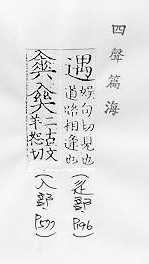 四聲篇海
遇 娛句切見也
道路相逢也
(辵部 P196)
二古文
羊恕切
(入部 P577)